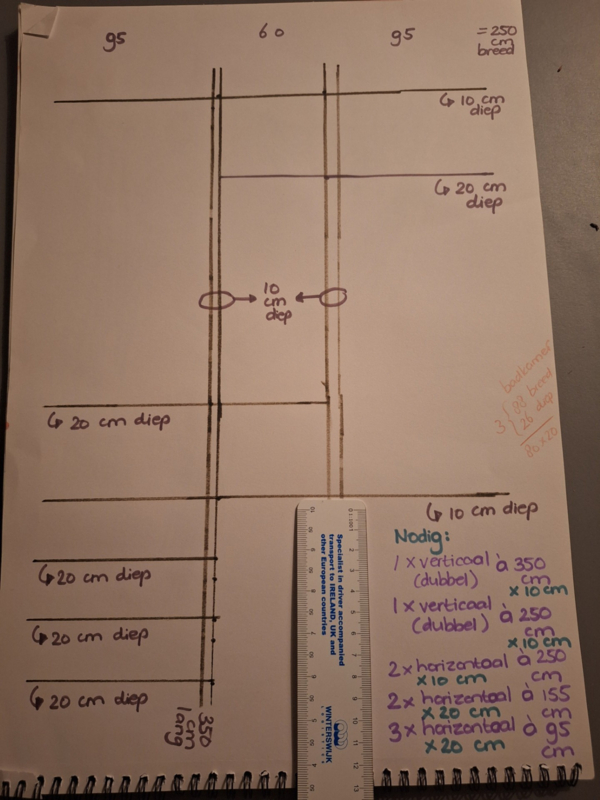 95
60
95
= 250
cm
breed
↳ 10 cm
diep
↳ 20 cm
diep
10
cm
diep
badkamer
3
88 breed
26 diep
80 x 20
↳ 20 cm diep
↳ 10 cm diep
↳ 20 cm diep
↳ 20 cm diep
↳ 20 cm diep
350
cm
lang
Specialist in driver accompanied
transport to IRELAND, UK and
other European countries
WINTERSWIJK
Nodig:
1 x verticaal à 350
(dubbel) cm
x 10 cm
1 x verticaal à 250
(dubbel) cm
x 10 cm
2 x horizontaal à 250
x 10 cm cm
2 x horizontaal à 155
x 20 cm cm
3 x horizontaal à 95
x 20 cm cm